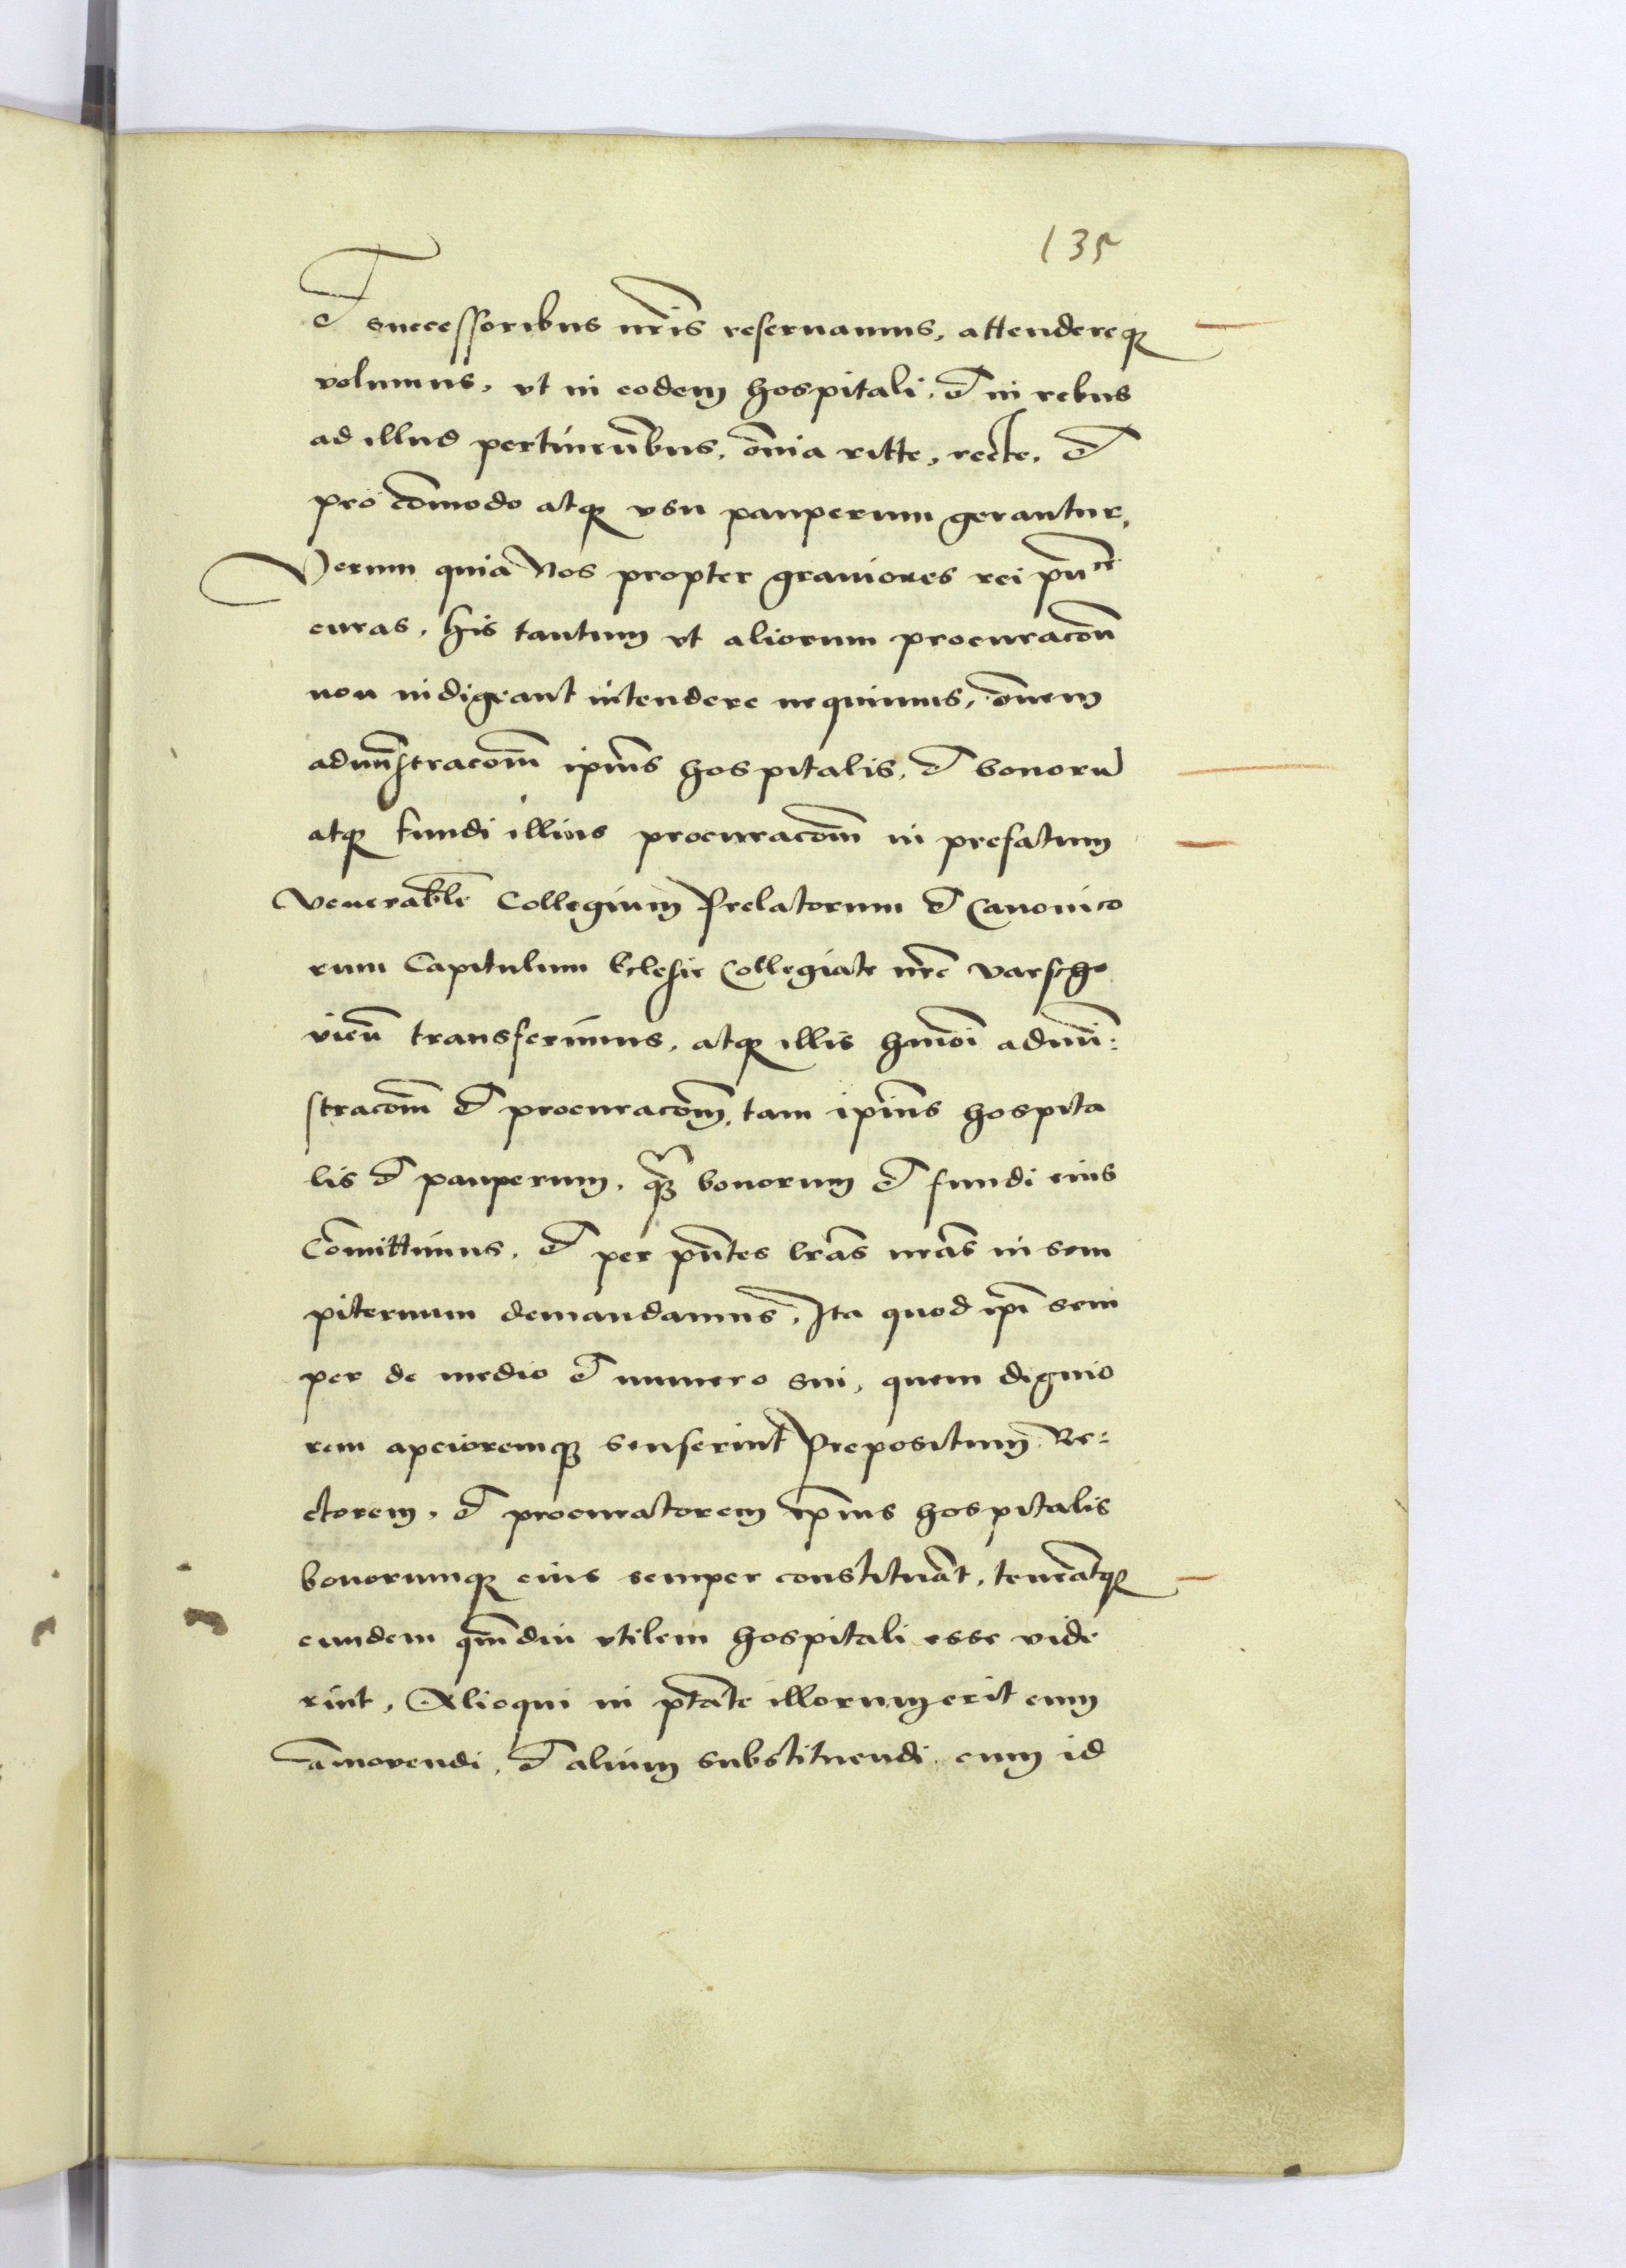 135
et successoribus nr̄is reseruamus, attendereq₃
volumus, vt in eodem hospitali, et in rebus
ad illud pertinen̄bus, om̄ia ritte, recte, et
pro com̄odo atq₃ vsu pauperum gerantur,
Verum quia Nos propter grauiores rei
curas, his tantum vt aliorum procuracōn
non indigeant intendere nequimus, om̄em
admin̄stracōm ip̄ius hospitalis, et bonorū
atq₃ fundi illius procuracōm in prefatum
Venerable Collegium Prelatorum et Canonico
rum Capitulum Eclesie Collegiate nr̄e Varscho
uien̄ transferimus, atq₃ illis hmōi admi:
stracōm et procuracōm, tam ip̄ius hospita
lis et pauperum, qz̄ bonorum et fundi eius
Com̄ittimus, et per pn̄tes lr̄as nr̄as in sem
piternum demandamus, Ita quod ip̄i sem
per de medio et numero sui, quem dignio
rem apcioremq₃ senserint Prepositum Re:
ctorem, et procuratorem ip̄ius hospitalis
bonorumq₃ eius semper constituāt, teneātq₃
eundem qm̄diu vtilem hospitali esse vide
rint, Alioqui in ptāte illorum erit eum
amouendi, et alium substituendi cum id